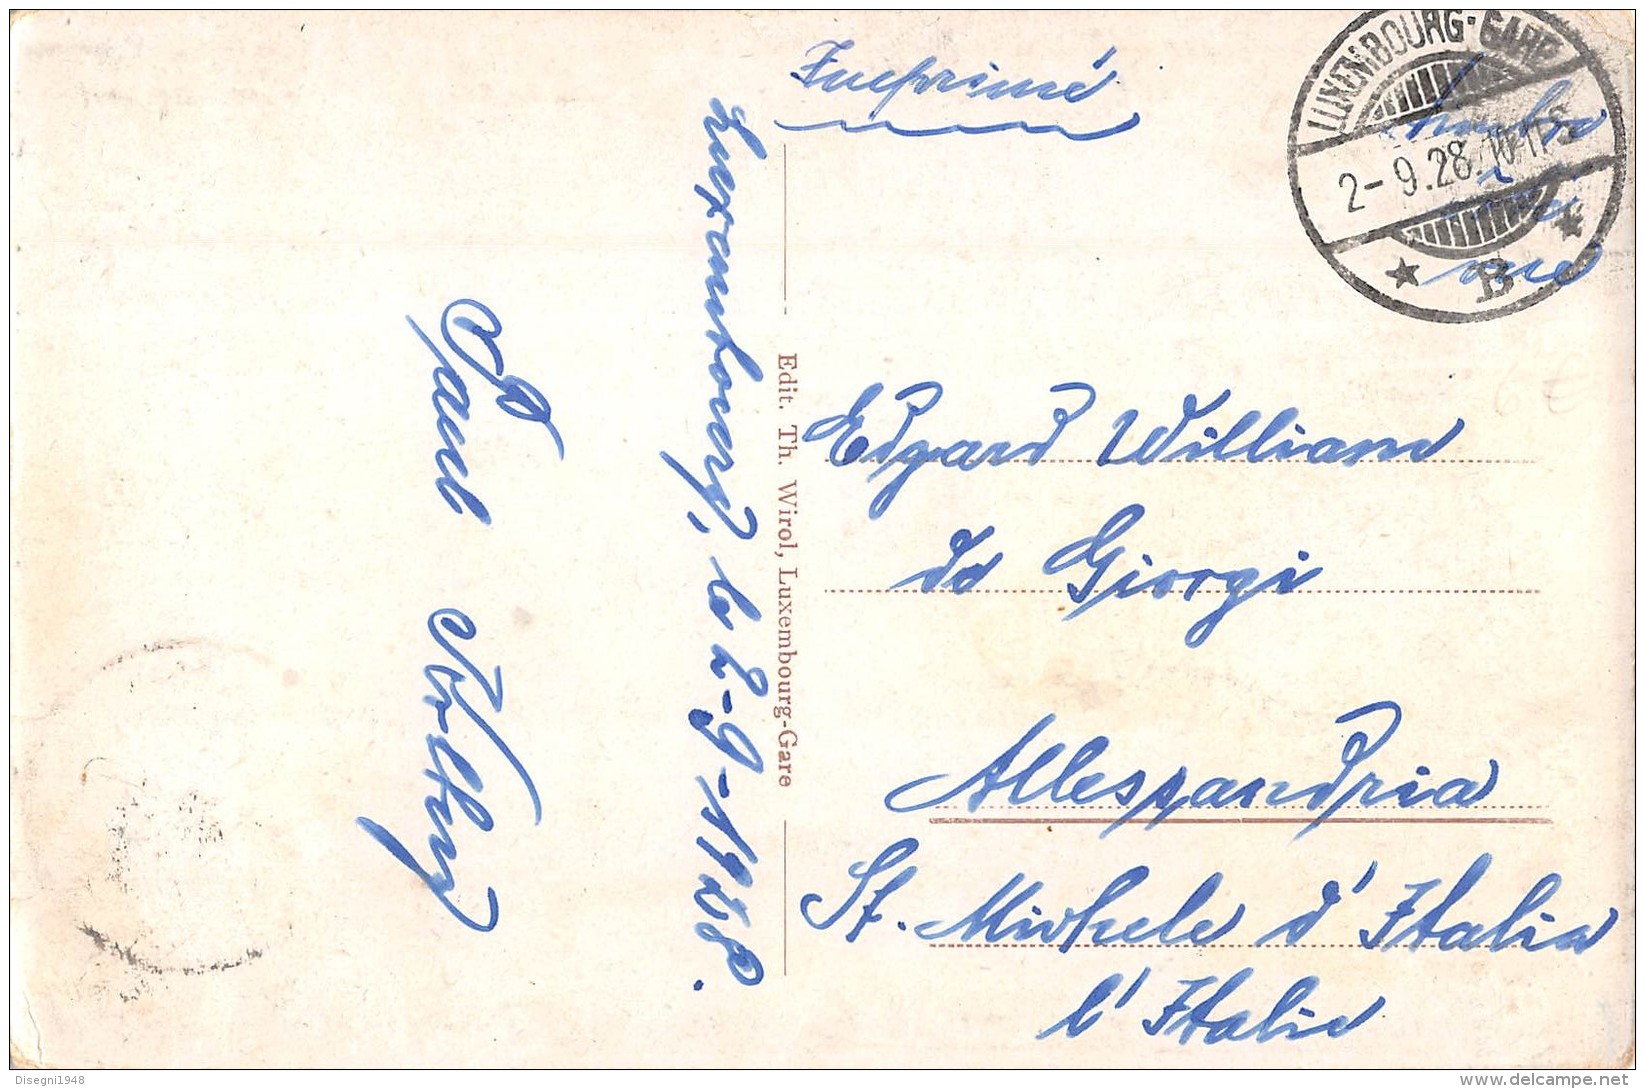 Imprimé
LUXEMBOURG-GARE
2-9.28.10-11S
B
timbre
vue
Luxembourg, le 2-9-1928.
Paul
Edit. Th. Wirol, Luxembourg-Gare
Edgard William
de Giorgi
Allessandria
St. Michele d'Italia
l'Italie
Disegni1948
delcampe.net